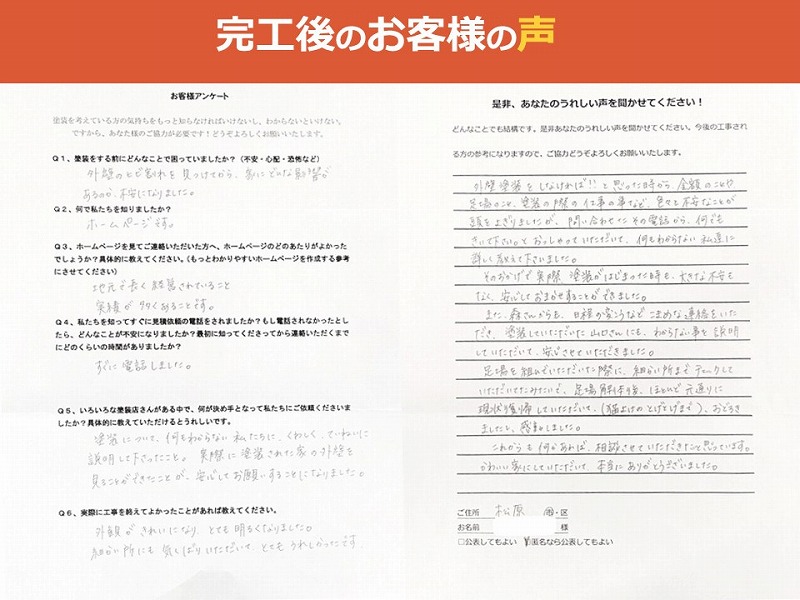 完工後のお客様の声
お客様アンケート
塗装を考えている方の気持ちをもっと知らなければいけないし、わからないといけない。
ですから、あなた様のご協力が必要です！どうぞよろしくお願いいたします。
Q１、塗装をする前にどんなことで困っていましたか？（不安・心配・恐怖など）
外壁のヒビ割れを見つけてから、家にどんな影響が
あるのか、不安になりました。
Q２、何で私たちを知りましたか？
ホームページです。
Q３、ホームページを見てご連絡いただいた方へ、ホームページのどのあたりがよかった
でしょうか？具体的に教えてください。（もっとわかりやすいホームページを作成する参考
にさせてください）
地元で長く経営されていること
実績が多くあることです。
Q４、私たちを知ってすぐに見積依頼の電話をされましたか？もし電話されなかったとし
たら、どんなことが不安になりましたか？最初に知ってくださってから連絡いただくまで
にどのくらいの時間がありましたか？
すぐに電話しました。
Q５、いろいろな塗装店さんがある中で、何が決め手となって私たちにご依頼くださいま
したか？具体的に教えていただけるとうれしいです。
塗装について、何もわからない私たちに、くわしく、ていねいに
説明して下さったこと。実際に塗装された家の外壁を
見ることができたことが、安心してお願いすることになりました。
Q６、実際に工事を終えてよかったことがあれば教えてください。
外観がきれいになり、とても明るくなりました。
細かい所にも気くばりいただいて、とてもうれしかったです。
是非、あなたのうれしい声を聞かせてください！
どんなことでも結構です。是非あなたのうれしい声を聞かせてください。今後の工事され
る方の参考になりますので、ご協力どうぞよろしくお願いいたします。
外壁塗装をしなければ!!と思った時から、金額のことや
足場のこと、塗装の際の仕事の事など、色々と不安なことが
頭をよぎりましたが、問い合わせたその電話から、何でも
きいて下さい。とおっしゃっていただいて、何もわからない私達に
詳しく教えて下さいました。
そのおかげで実際、塗装がはじまった時も、大きな不安も
なく、安心しておまかせすることができました。
また、森さんからも、日程が変わるなどこまめな連絡をいた
だき、塗装していただいた山口さんにも、わからない事を説明
していただいて、安心させていただきました。
足場を組んでいただいた際に、細かい所までチェックして
いただいてたみたいで、足場解体後、ほとんど元通りに
現状復帰していただいて、(猫よけのとげとげまで)、おどろき
ましたし、感動しました。
これからも何かあれば、相談させていただきたいと思っています。
かわいい家にしていただいて、本当にありがとうございました。
ご住所 松原 市・区
お名前 様
□公表してもよい ☑匿名なら公表してもよい